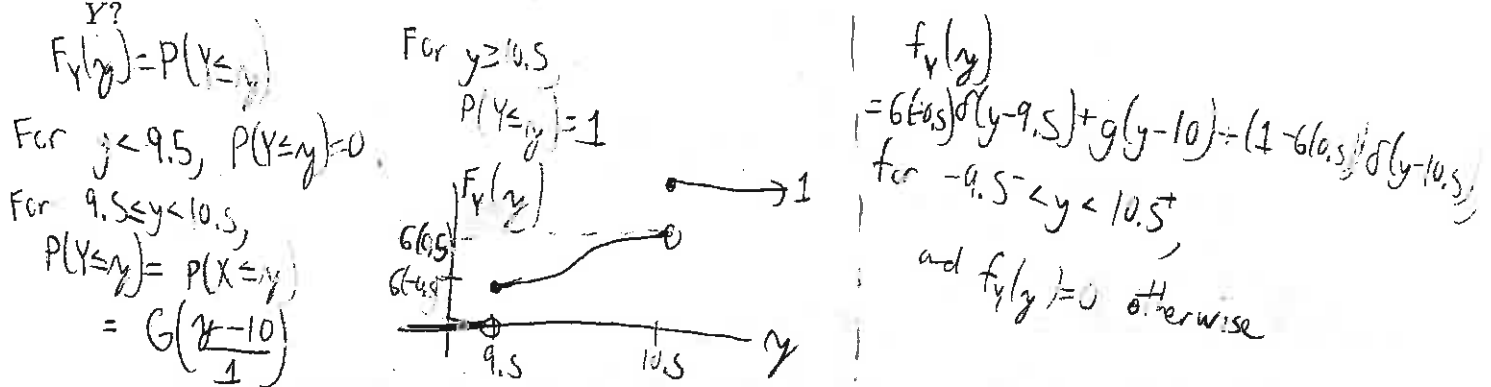 Y?
F_Y(y) = P(Y ≤ y)
For y < 9.5, P(Y ≤ y) = 0
For 9.5 ≤ y < 10.5,
P(Y ≤ y) = P(X ≤ y)
= G((y - 10)/1)
For y ≥ 10.5
P(Y ≤ y) = 1
F_Y(y)
1
G(0.5)
G(-0.5)
9.5
10.5
y
f_Y(y)
= G(-0.5)δ(y-9.5) + g(y-10) + (1 - G(0.5))δ(y-10.5),
for -9.5⁻ < y < 10.5⁺,
and f_Y(y) = 0 otherwise